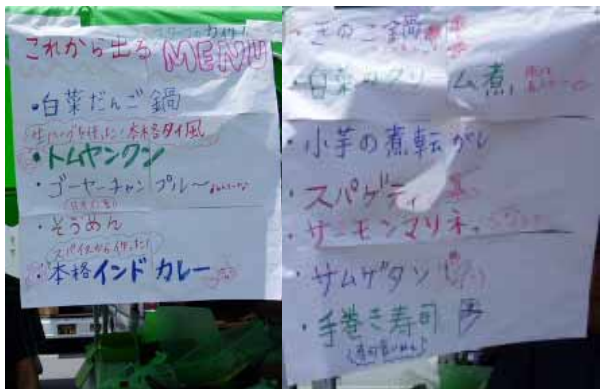 これから出る
MENU
・白菜だんご鍋
本格タイ風
・トムヤンクン
・ゴーヤーチャンプルー
・そうめん
スパイスから作った!
・本格インドカレー
・きのこ鍋
・白菜のクリーム煮
・小芋の煮転がし
・スパゲティ
・サーモンマリネ
・サムゲタン
・手巻き寿司